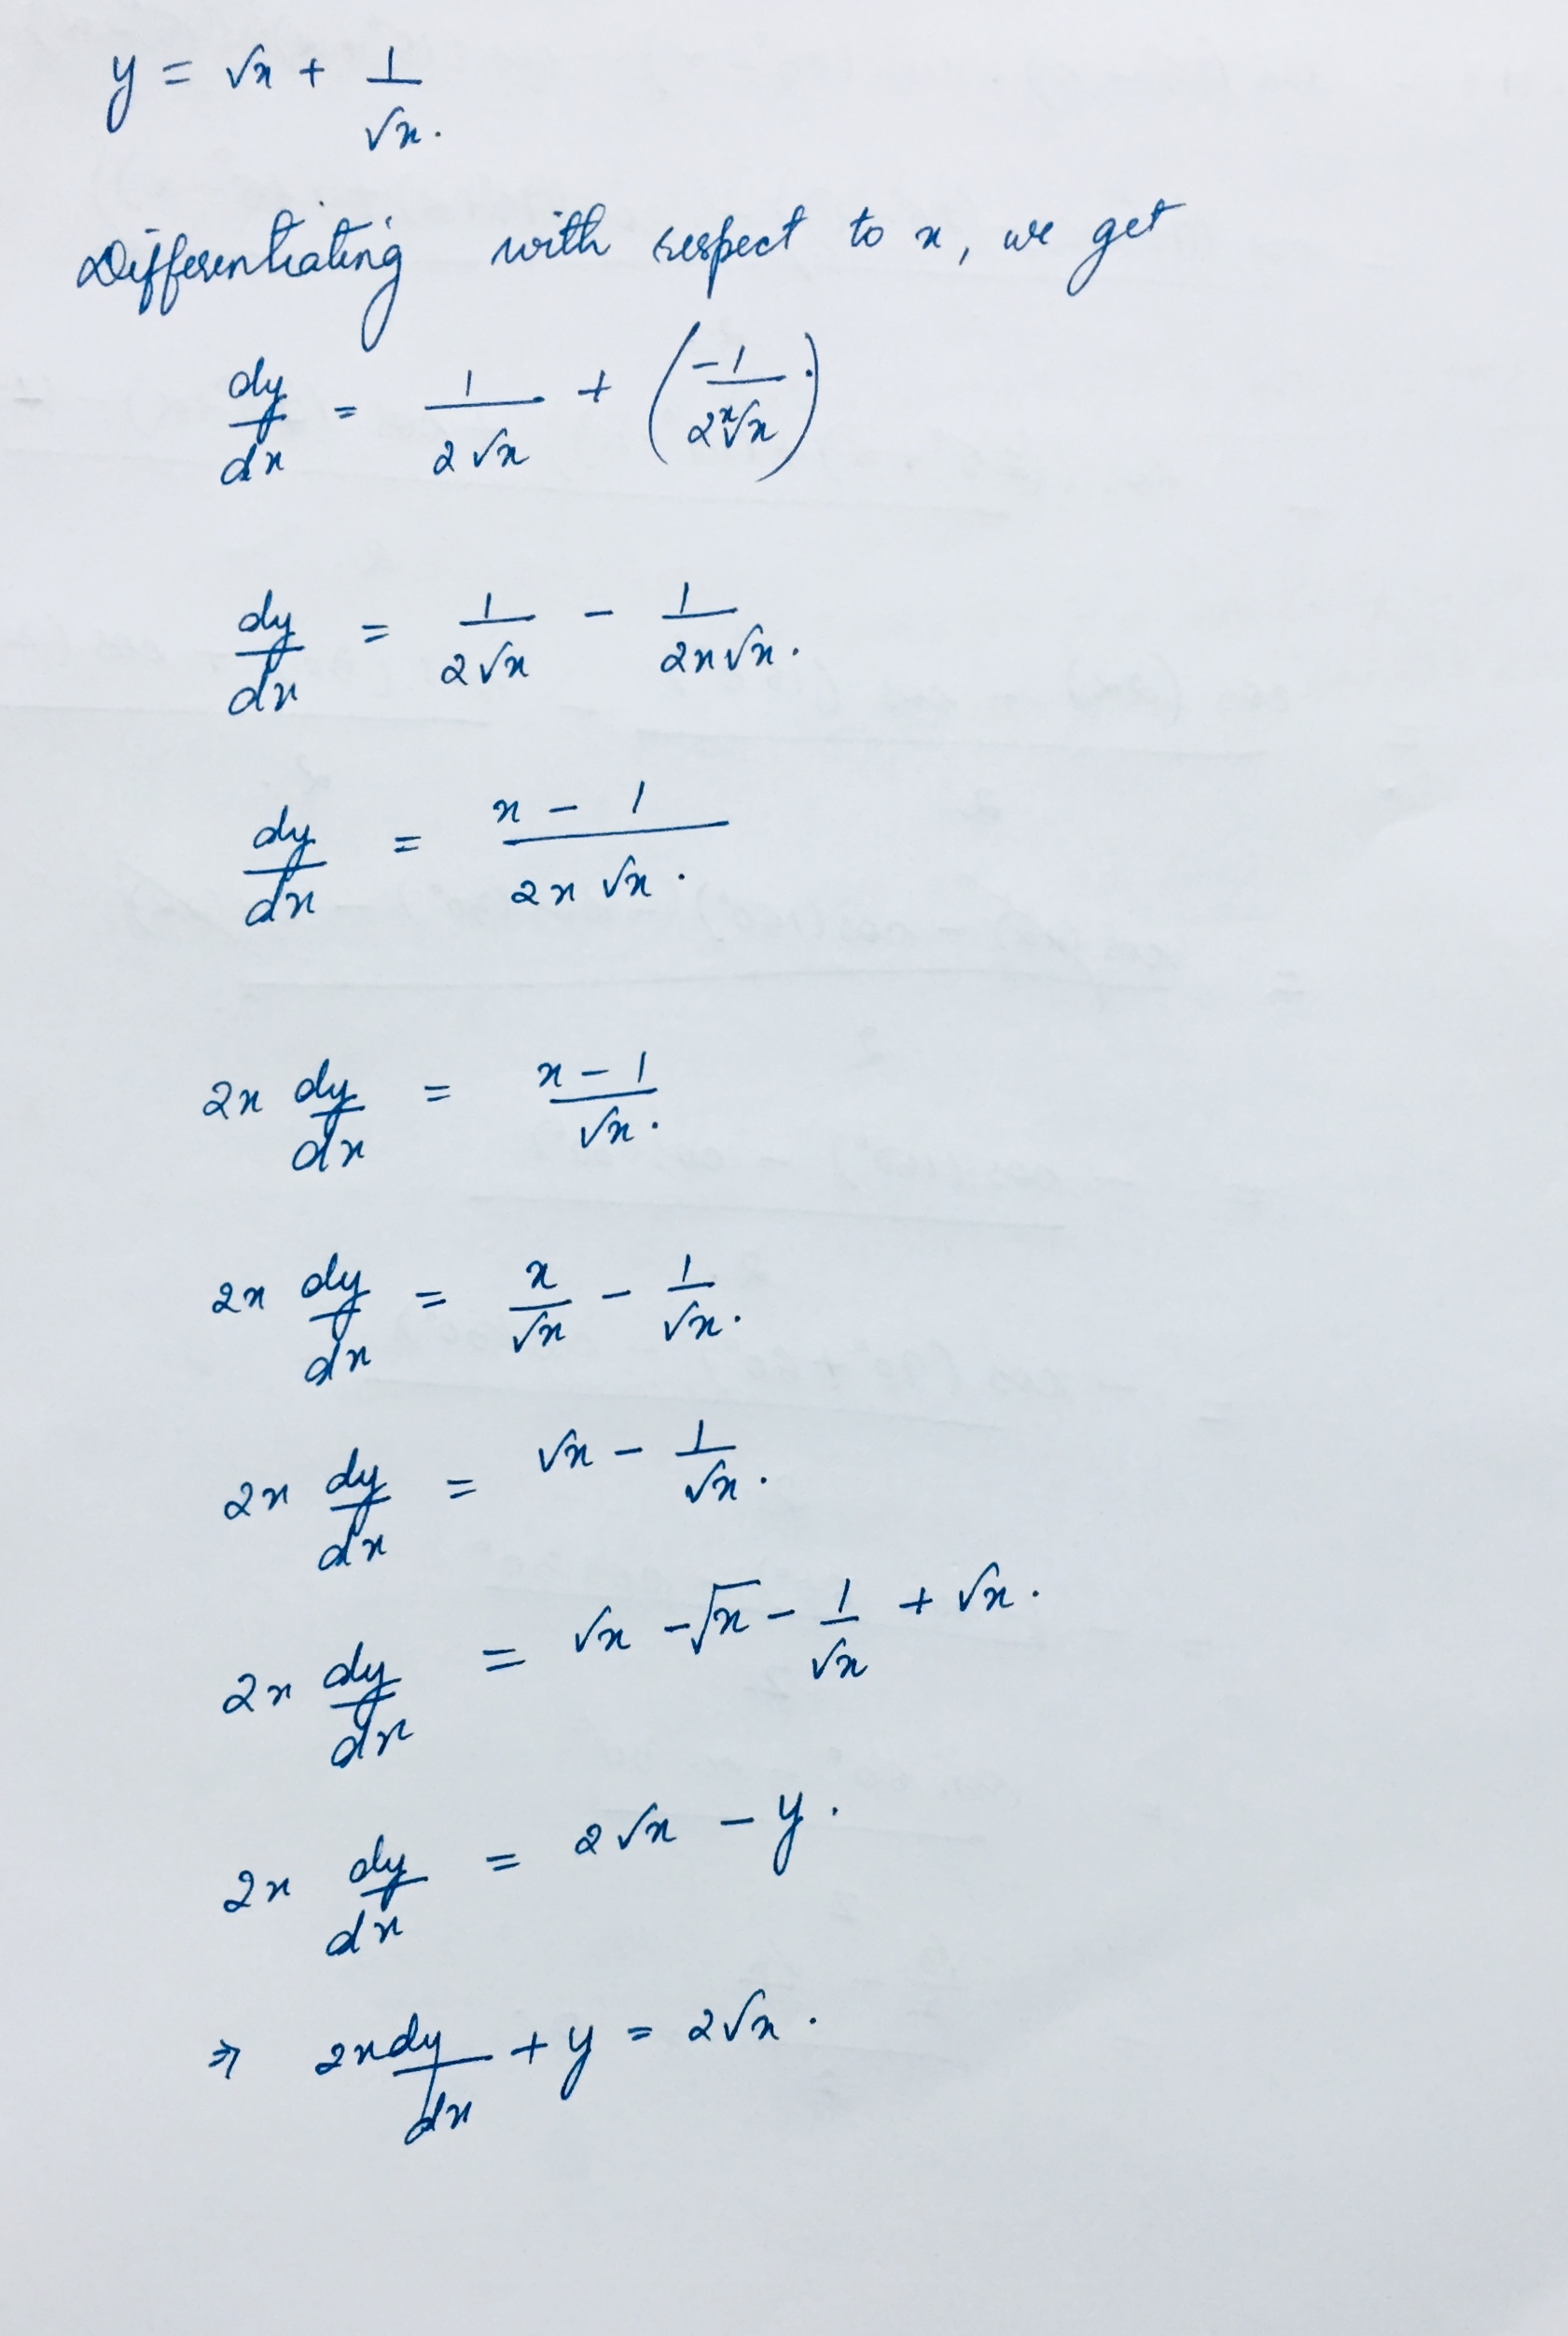 y = √x + 1/√x.
Differentiating with respect to x, we get
dy/dx = 1/2√x + (-1/2x√x).
dy/dx = 1/2√x - 1/2x√x.
dy/dx = x - 1/2x√x.
2x dy/dx = x - 1/√x.
2x dy/dx = x/√x - 1/√x.
2x dy/dx = √x - 1/√x.
2x dy/dx = √x - √x - 1/√x + √x.
2x dy/dx = 2√x - y.
⇒ 2x dy/dx + y = 2√x.